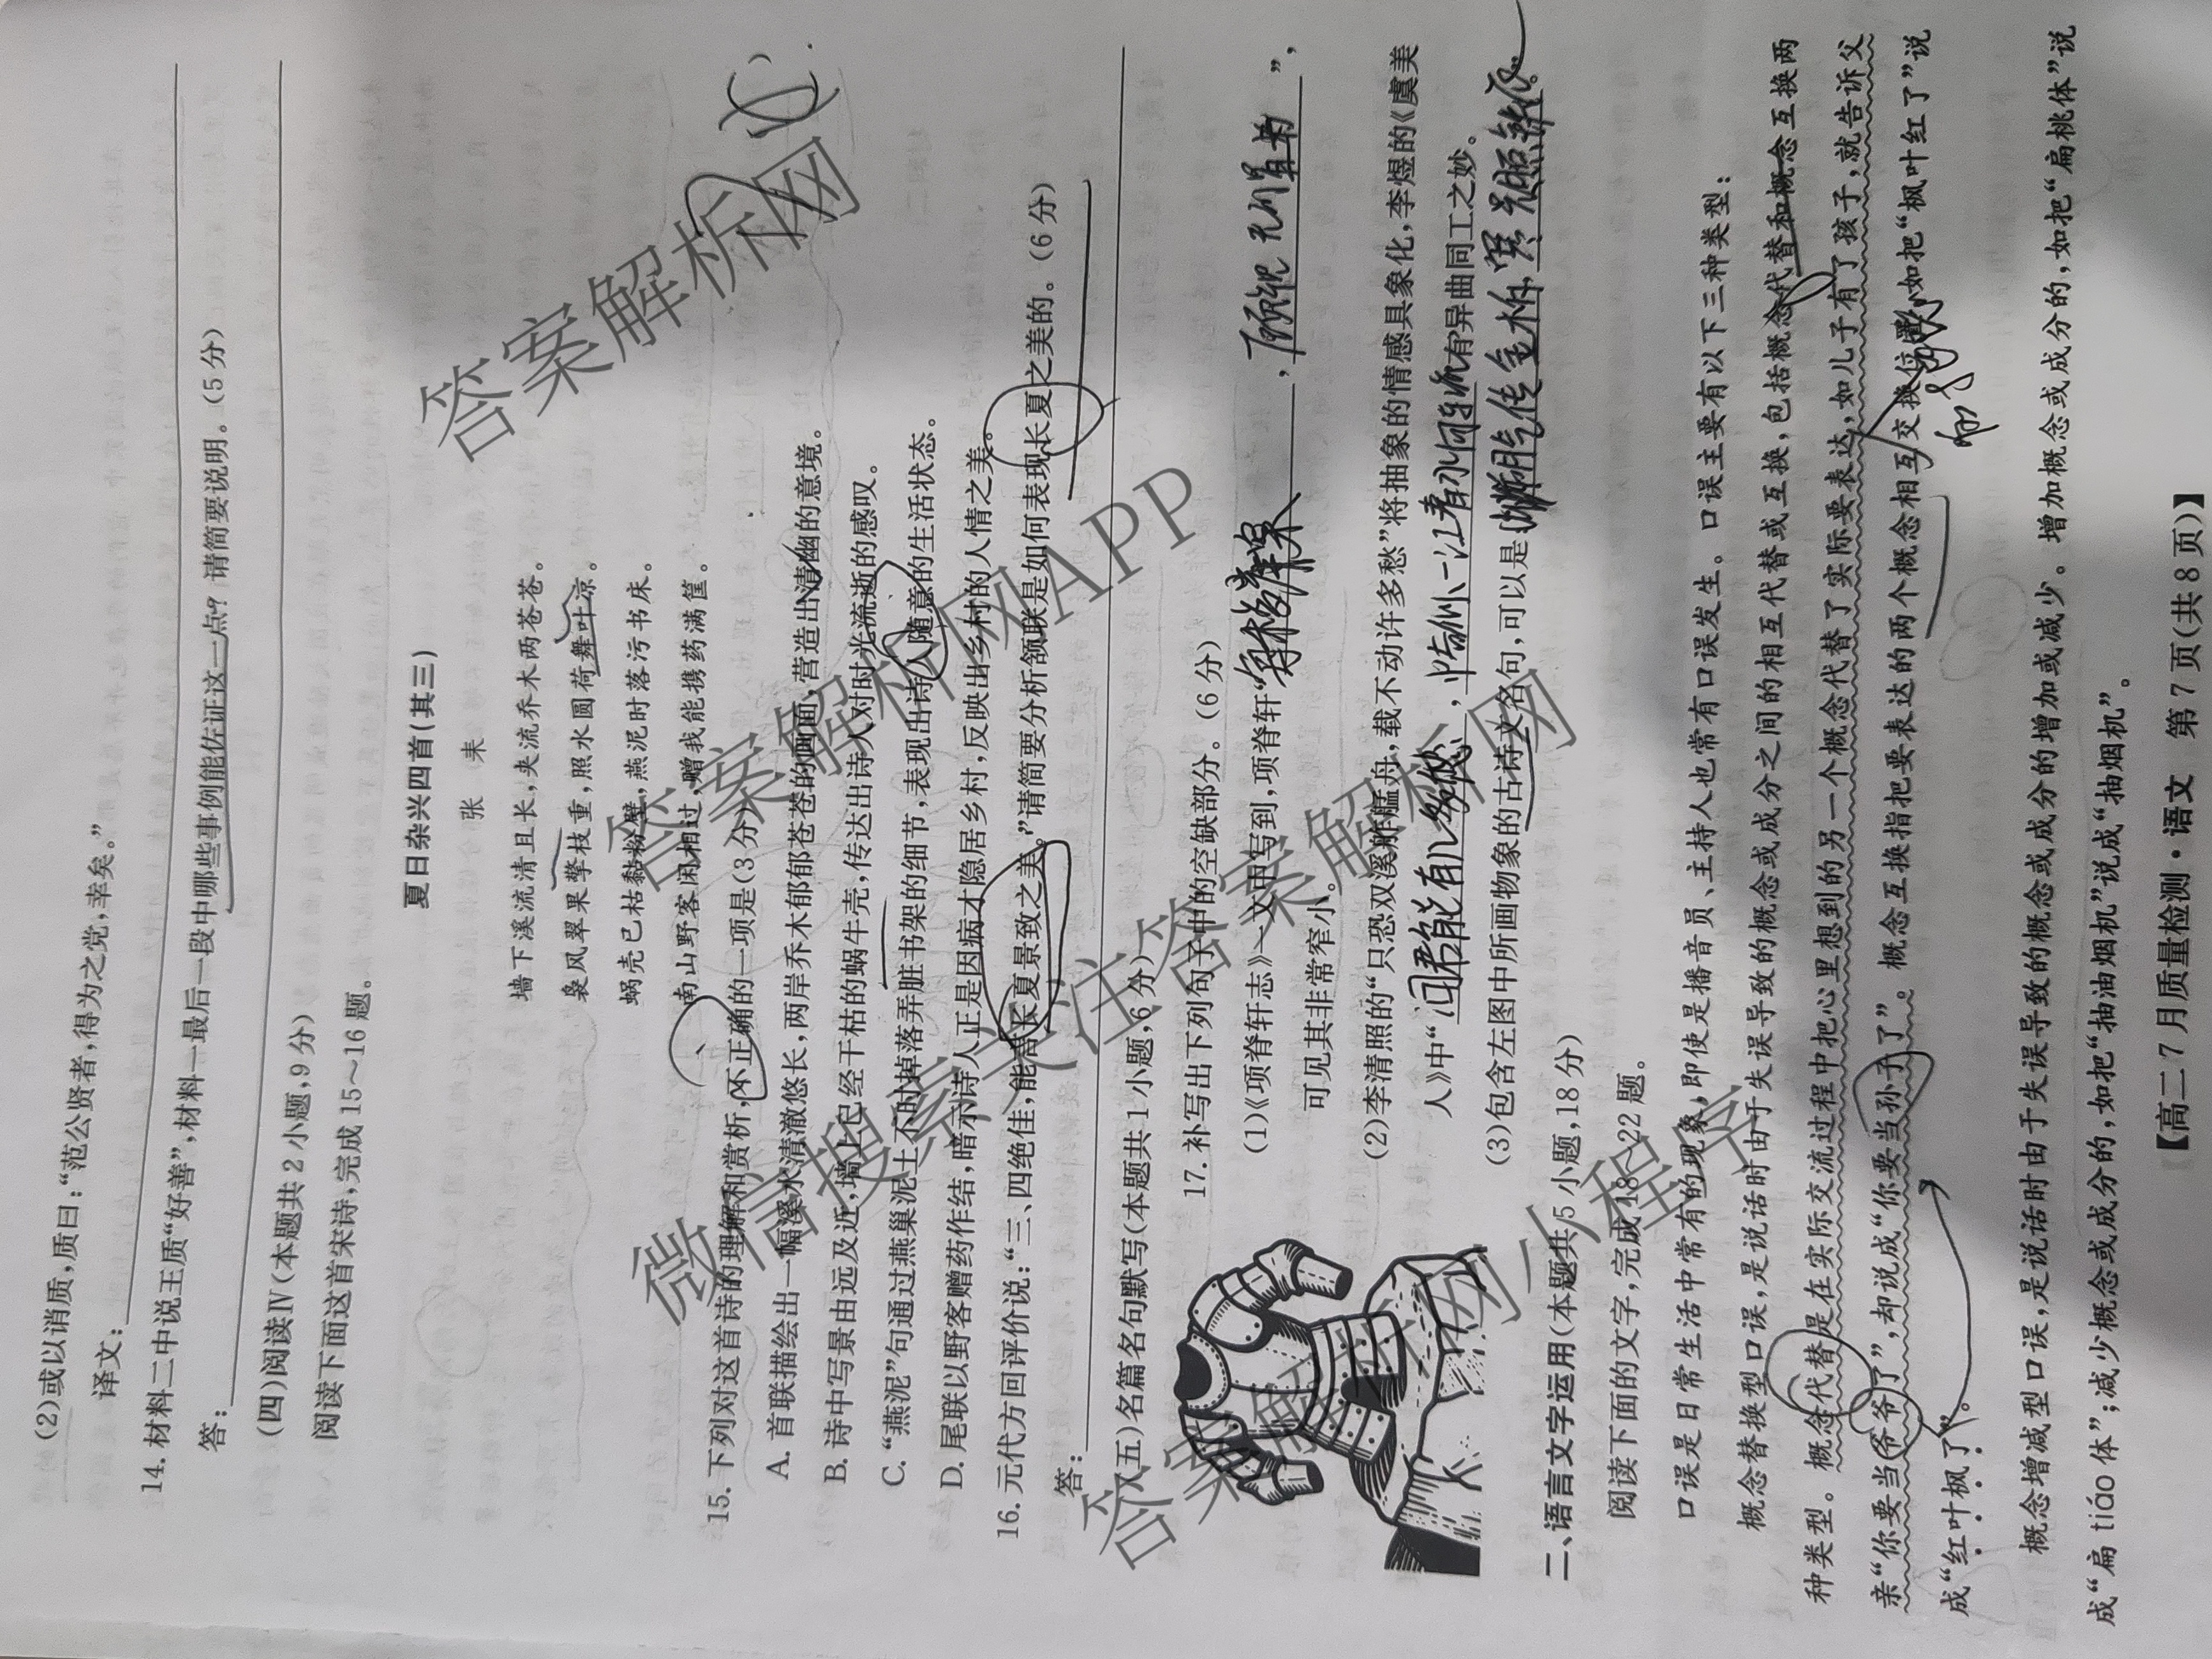 (2)或以诮质,质曰:“范公贤者,得为之党,幸矣。”
译文:
14.材料二中说王质“好善”,材料一最后一段中哪些事例能佐证这一点?请简要说明。(5分)
答:
(四)阅读Ⅳ(本题共2小题,9分)
阅读下面这首宋诗,完成15～16题。
夏日杂兴四首(其三)
张 耒
墙下溪流清且长,夹流乔木两苍苍。
袅风翠果擎枝重,照水圆荷舞叶凉。
蜗壳已枯黏粉壁,燕泥时落污书床。
南山野客闲相过,赠我能携药满筐。
15.下列对这首诗的理解和赏析,不正确的一项是(3分)
A.首联描绘出一幅溪水清澈悠长,两岸乔木郁郁苍苍的画面,营造出清幽的意境。
B.诗中写景由远及近,墙上已经干枯的蜗牛壳,传达出诗人对时光流逝的感叹。
C.“燕泥”句通过燕巢泥土不时掉落弄脏书架的细节,表现出诗人随意的生活状态。
D.尾联以野客赠药作结,暗示诗人正是因病才隐居乡村,反映出乡村的人情之美。
16.元代方回评价说:“三、四绝佳,能言长夏景致之美。”请简要分析颔联是如何表现长夏之美的。(6分)
答:
(五)名篇名句默写(本题共1小题,6分)
17.补写出下列句子中的空缺部分。(6分)
(1)《项脊轩志》一文中写到,项脊轩“ , ”,
可见其非常窄小。
(2)李清照的“只恐双溪舴艋舟,载不动许多愁”将抽象的情感具象化,李煜的《虞美
人》中“问君能有几多愁,恰似一江春水向东流有异曲同工之妙。
(3)包含左图中所画物象的古诗文名句,可以是“朔气传金柝,寒光照铁衣”。
二、语言文字运用(本题共5小题,18分)
阅读下面的文字,完成18～22题。
口误是日常生活中常有的现象,即使是播音员、主持人也常有口误发生。口误主要有以下三种类型:
概念替换型口误,是说话时由于失误导致的概念或成分之间的相互代替或互换,包括概念代替和概念互换两
种类型。概念代替是在实际交流过程中把心里想到的另一个概念代替了实际要表达,如儿子有了孩子,就告诉父
亲“你要当爷爷了”,却说成“你要当孙子了”。概念互换指把要表达的两个概念相互交换位置,如把“枫叶红了”说
成“红叶枫了”。
概念增减型口误,是说话时由于失误导致的概念或成分的增加或减少。增加概念或成分的,如把“扁桃体”说
成“扁tiáo体”;减少概念或成分的,如把“抽油烟机”说成“抽烟机”。
【高二7月质量检测·语文 第7页(共8页)】
答案解析网
答案解析网APP
微信搜索关注答案解析网
答案解析网小程序